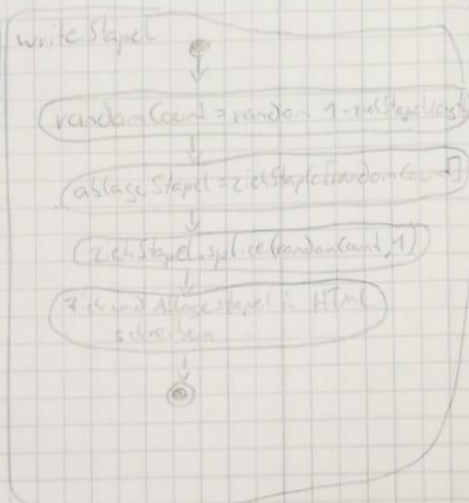 writeStapel
randomCount = random 1-ziehStapel
ablageStapel = ziehStaple[randomCount]
ziehStapel.splice(randomCount, 1)
Zieh und Ablagestapel in HTML
schreiben